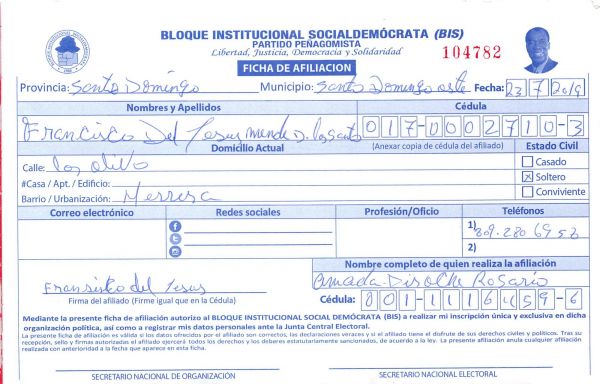 BLOQUE INSTITUCIONAL SOCIALDEMÓCRATA (BIS)
PARTIDO PEÑAGOMISTA
Libertad, Justicia, Democracia y Solidaridad
104782
FICHA DE AFILIACION
Provincia: Santo Domingo Municipio: Santo Domingo este Fecha: 23 7 2019
Nombres y Apellidos Cédula
Francisco Del Jesus Mende D. los Santo 017-0002710-3
Domicilio Actual (Anexar copia de cédula del afiliado) Estado Civil
Calle: los olivo Casado
#Casa / Apt. / Edificio: X Soltero
Barrio / Urbanización: Conviviente
Correo electrónico Redes sociales Profesión/Oficio Teléfonos
1) 809-280 6953
2)
Nombre completo de quien realiza la afiliación
Fransisko del Jesus Amada Rosario
Firma del afiliado (Firme igual que en la Cédula) Cédula: 001-1116459-6
Mediante la presente ficha de afiliación autorizo al BLOQUE INSTITUCIONAL SOCIAL DEMÓCRATA (BIS) a realizar mi inscripción única y exclusiva en dicha
organización política, así como a registrar mis datos personales ante la Junta Central Electoral.
La presente ficha de afiliación es válida si los datos ofrecidos por el afiliado son correctos, las declaraciones veraces y si el afiliado tiene el disfrute de sus derechos civiles y políticos. Tras su
recepción, sello y firmas autorizadas el afiliado ejercerá todos los derechos y los deberes estatutariamente sancionados, de acuerdo a la ley. La presente afiliación anula cualquier afiliación
realizada con anterioridad a la fecha que aparece en esta ficha.
SECRETARIO NACIONAL DE ORGANIZACIÓN SECRETARIO NACIONAL ELECTORAL